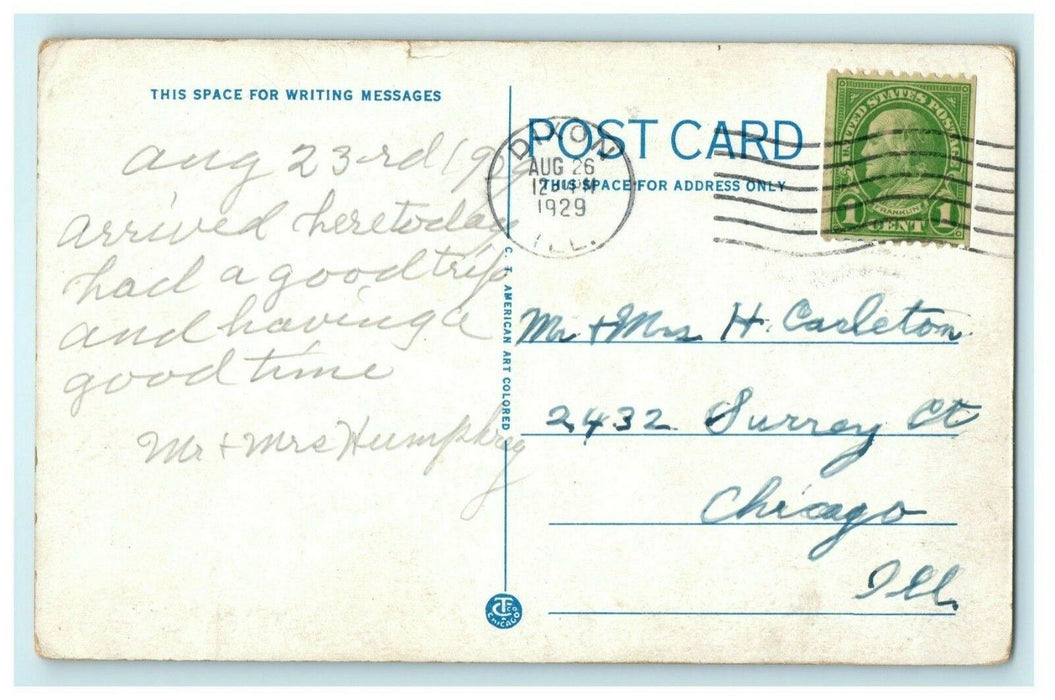 THIS SPACE FOR WRITING MESSAGES
Aug 23rd 19
arrived here today
had a good trip
and having a
good time
Mr + Mrs Humphrey
C. T. AMERICAN ART COLORED
CTCO
CHICAGO
POST CARD
THIS SPACE FOR ADDRESS ONLY
DIXON
AUG 26
12 PM
1929
ILL.
UNITED STATES POSTAGE
FRANKLIN
1 CENT 1
Mr + Mrs H. Carleton
2432 Surrey Ct
Chicago
Ill.